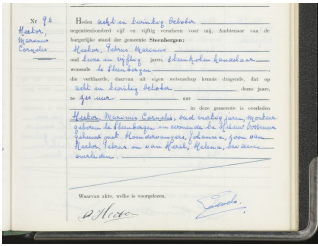 Nr 96
Heden acht en twintig October
Hector,
Marinus
Cornelis
negentienhonderd vijf en vijftig verscheen voor mij, Ambtenaar van de
burgerlijke stand der gemeente Steenbergen:
Hector, Petrus Marinus
oud twee en vijftig jaren, steenkolen handelaar
wonende te Steenbergen
die verklaarde, daarvan uit eigen wetenschap kennis dragende, dat op
acht en twintig October dezes jaars,
te uur nur
in deze gemeente is overleden
Hector Marinus Cornelis, oud veertig jaren, monteur
geboren te Steenbergen en wonende te
gehuwd met Johanna, zoon van
Hector, Petrus en van Helena, beiden
overleden.
Waarvan akte, welke is voorgelezen.